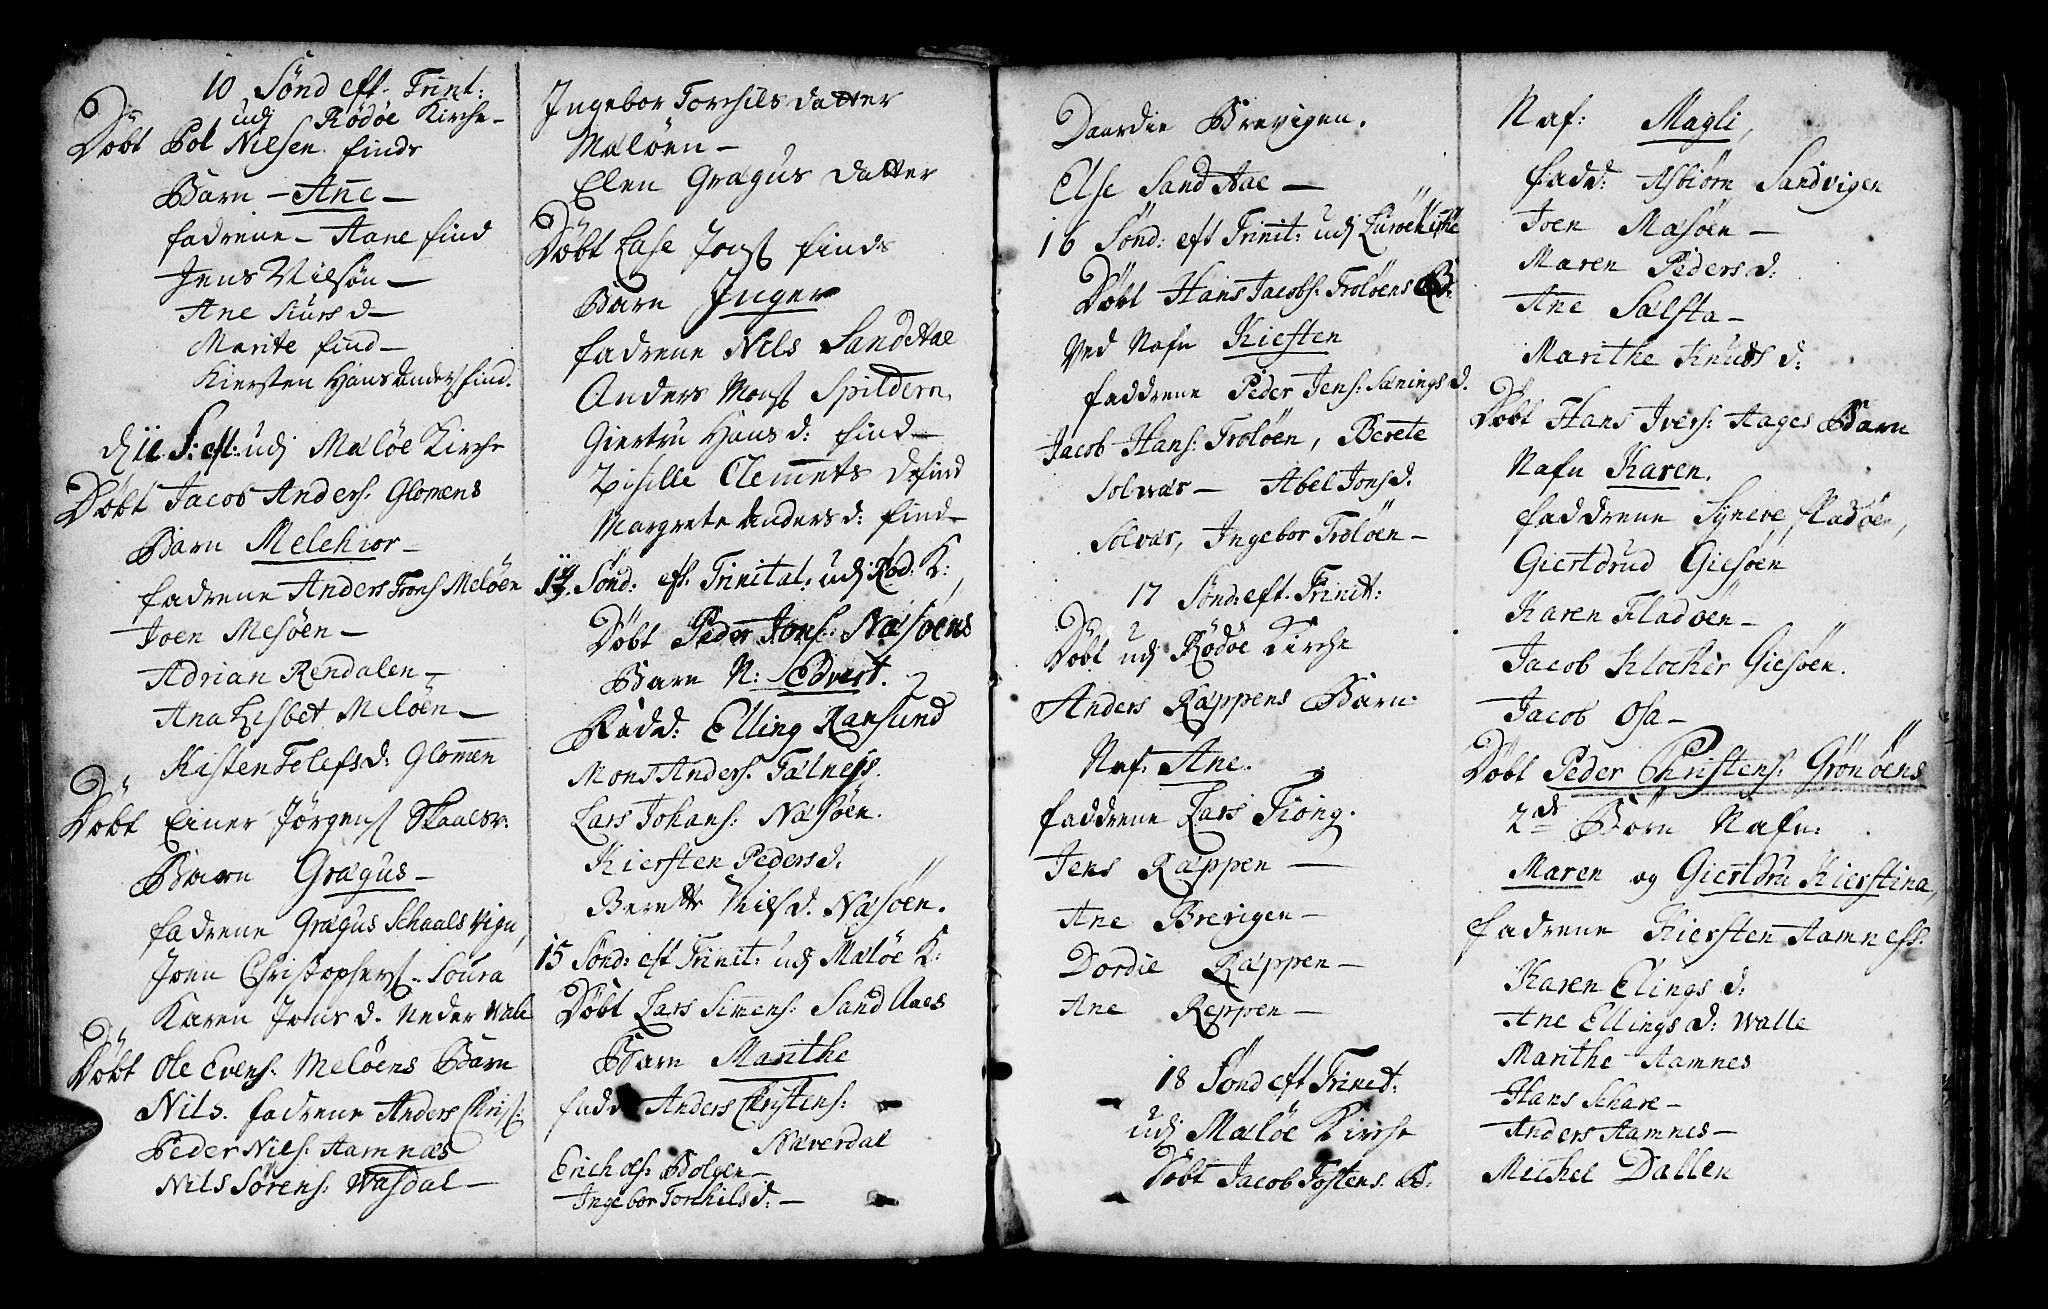 10 Sønd eft. Trint:
udj Rödöe Kirche
Döbt Pol Nilsen finds
Barn - Ane -
fadrene - Aane find
Jens Nilsön -
Ane Siursd -
Marite find -
Kiersten Hans Anders find.
d 11 S: eft: udj Melöe Kirche
Döbt Jacob Anders: Glomens
Barn Melchior -
fadrene Anders Trons Melöen
Joen Mesöen -
Adrian Rendalen -
Ana Lisbet Melöen -
Kisten Tolefsd: Glomen
Döbt Einer Jörgens Skaalsv:
Barn Grægus -
fadrene Grægus Schaalsvign,
Joen Christophers: Soura
Karen Jons d. Neder Wale
Döbt Ole Evens: Melöens Barn
Nils. fadrene Anders Chris:
Peder Nils: Aamnæs
Nils Sörens: Wasdal -
Ingebor Torchils datter
Meløen -
Elen Grægus datter
Döbt Lase Jons finds
Barn Inger
fadrene Nils Sand Aae
Anders Mons Spildern,
Giertru Hans d: find -
Zisille Clemmets d find
Margrete Anders d: find -
14. Sönd: eft. Trinitat: udj Röd: K:
Döbt Peder Jons: Næsöens
Barn N: Edvert.
Fadd: Elling Ransund
Mons Anders: Falness.
Lars Johans: Næsöen.
Kiersten Peders d:
Berette Nils d. Næsöen.
15 Sönd: eft Trinit: udj Melöe K:
Döbt Lars Simens: Sand Aaes
Barn Marithe
fadd Anders Christens:
Næverdal
Erich ols: Bolgen -
Ingebor Torchils d: -
Daardie Brevigen.
Else Sand Aae -
16 Sönd: eft Trinit: udj Luröe Kirche
Döbt Hans Jacobs: Trolöens B:
Ved Nafn Kiesten
faddrene Peder Jens: Sænings d.
Jacob Hans: Trolöen, Berete
Solvær - Abel Jons d.
Solvær, Ingebor Trolöen -
17 Sönd: eft. Trinit:
Döbt udj Rödöe Kirche
Anders Ræppens Barn
Naf: Ane.
faddrene Lars Tiong.
Jens Ræppen -
Ane Brevigen -
Dordie Ræppen -
Ane Reppen -
18 Sönd eft Trinit:
udj Melöe Kirche
Döbt Jacob Tostens: B:
Naf: Magli,
fadd: Asbiörn Sandvigen
Joen Mæsöen -
Maren Peders d:
Ane Sælsta -
Marithe Knuds d:
Döbt Hans Ivers: Aages Barn
Nafn Karen.
faddrene Syneve fladöen,
Giertdrud Giesöen
Karen Fladöen -
Jacob Klocker Giesöen.
Jacob Osa -
Döbt Peder Christens: Grönöens
2de Börn Nafn:
Maren og Giertdru Kierstina,
fadrene Kiersten Aamness:
Karen Elings d:
Ane Ellings d: Walle
Marithe Aamnes
Hans Schare -
Anders Aamnes -
Michel Dallen